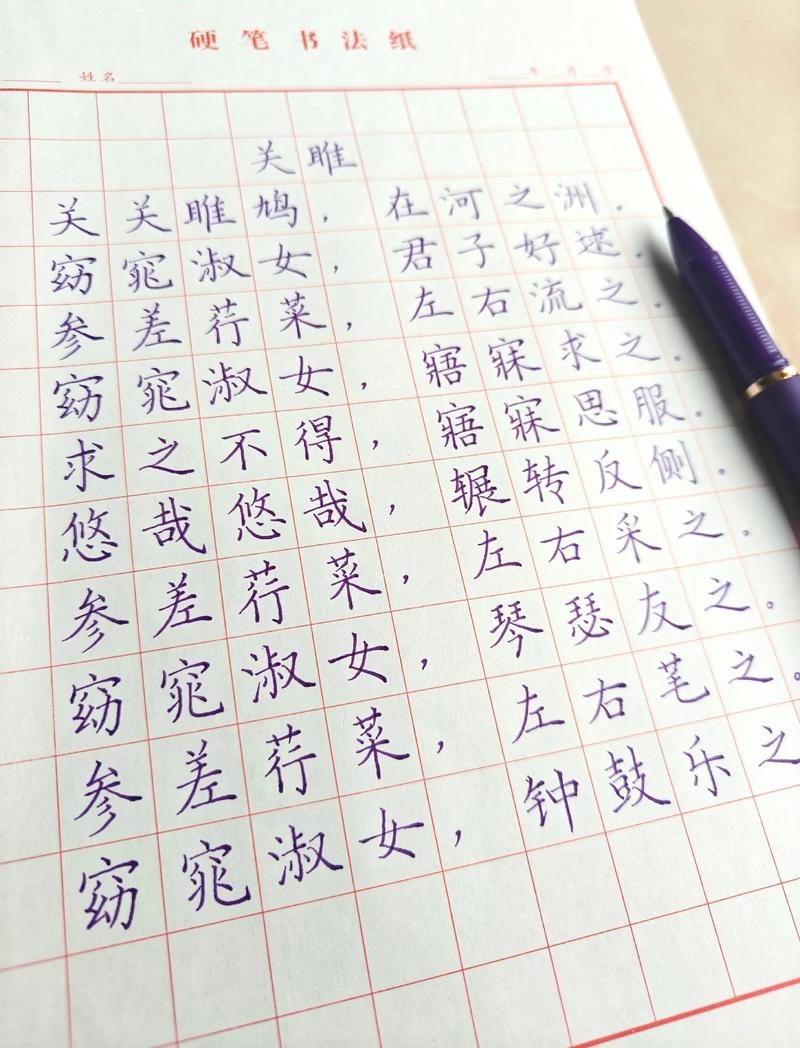 硬笔书法纸
姓名 年 月 日
关雎
关关雎鸠，在河之洲。
窈窕淑女，君子好逑。
参差荇菜，左右流之。
窈窕淑女，寤寐求之。
求之不得，寤寐思服。
悠哉悠哉，辗转反侧。
参差荇菜，左右采之。
窈窕淑女，琴瑟友之。
参差荇菜，左右芼之。
窈窕淑女，钟鼓乐之